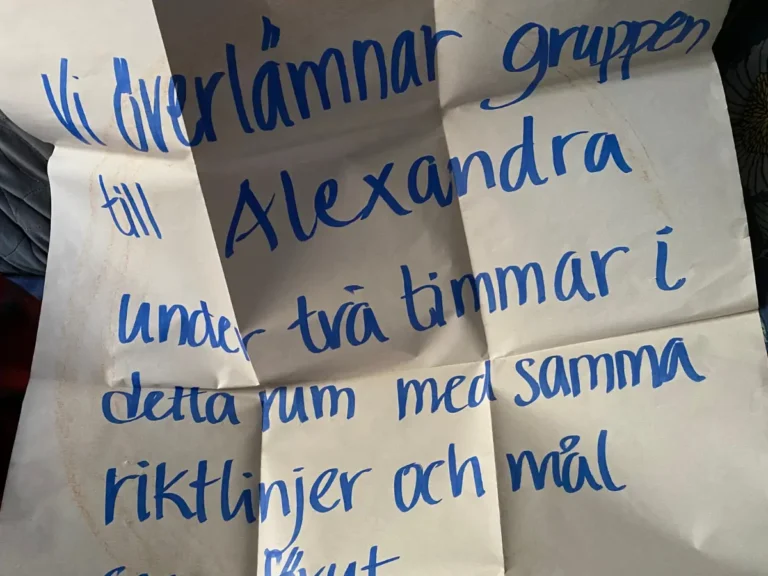 Vi överlämnar gruppen
till Alexandra
under två timmar i
detta rum med samma
riktlinjer och mål